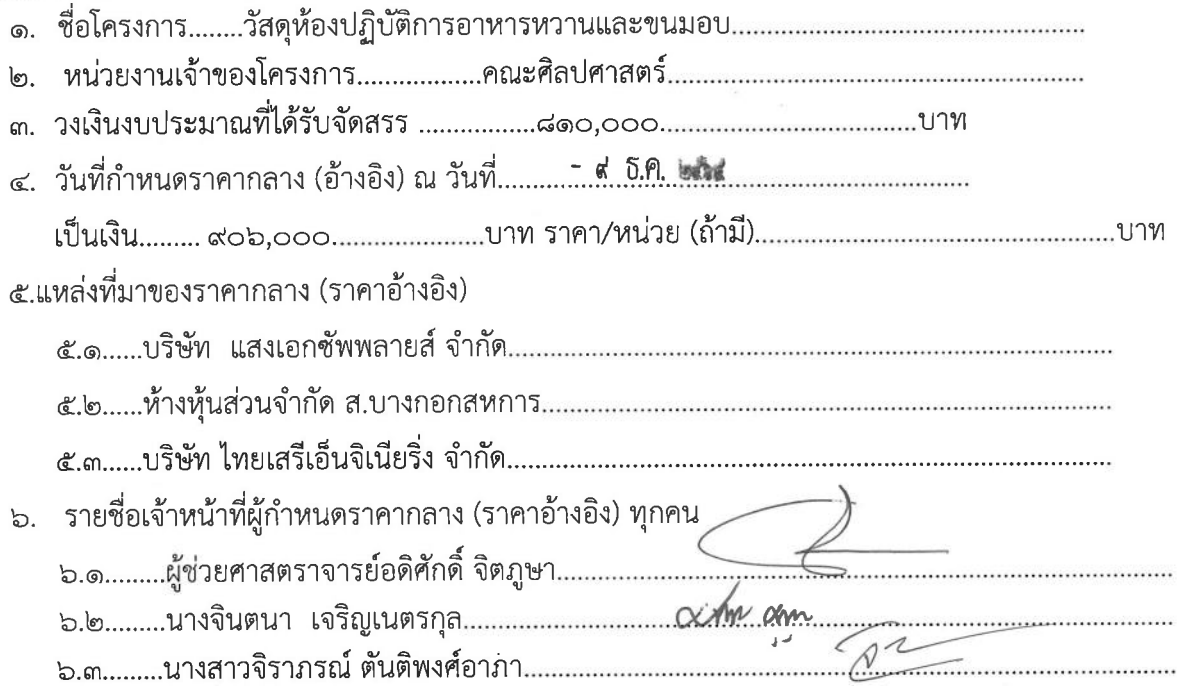 ๑. ชื่อโครงการ........วัสดุห้องปฏิบัติการอาหารหวานและขนมอบ................................................
๒. หน่วยงานเจ้าของโครงการ.................คณะศิลปศาสตร์.........................................................
๓. วงเงินงบประมาณที่ได้รับจัดสรร ................๘๑๐,๐๐๐...................................บาท
๔. วันที่กำหนดราคากลาง (อ้างอิง) ณ วันที่..........- ๙ ธ.ค. ..................................
เป็นเงิน......... ๙๐๖,๐๐๐.....................บาท ราคา/หน่วย (ถ้ามี)..................................................บาท
๕.แหล่งที่มาของราคากลาง (ราคาอ้างอิง)
๕.๑......บริษัท แสงเอกซัพพลายส์ จำกัด...................................................................................
๕.๒......ห้างหุ้นส่วนจำกัด ส.บางกอกสหการ..............................................................................
๕.๓......บริษัท ไทยเสรีเอ็นจิเนียริ่ง จำกัด...................................................................................
๖. รายชื่อเจ้าหน้าที่ผู้กำหนดราคากลาง (ราคาอ้างอิง) ทุกคน
๖.๑.........ผู้ช่วยศาสตราจารย์อดิศักดิ์ จิตภูษา.....................................................................................
๖.๒.........นางจินตนา เจริญเนตรกุล..................................................................................................
๖.๓.........นางสาวจิราภรณ์ ตันติพงศ์อาภา.........................................................................................